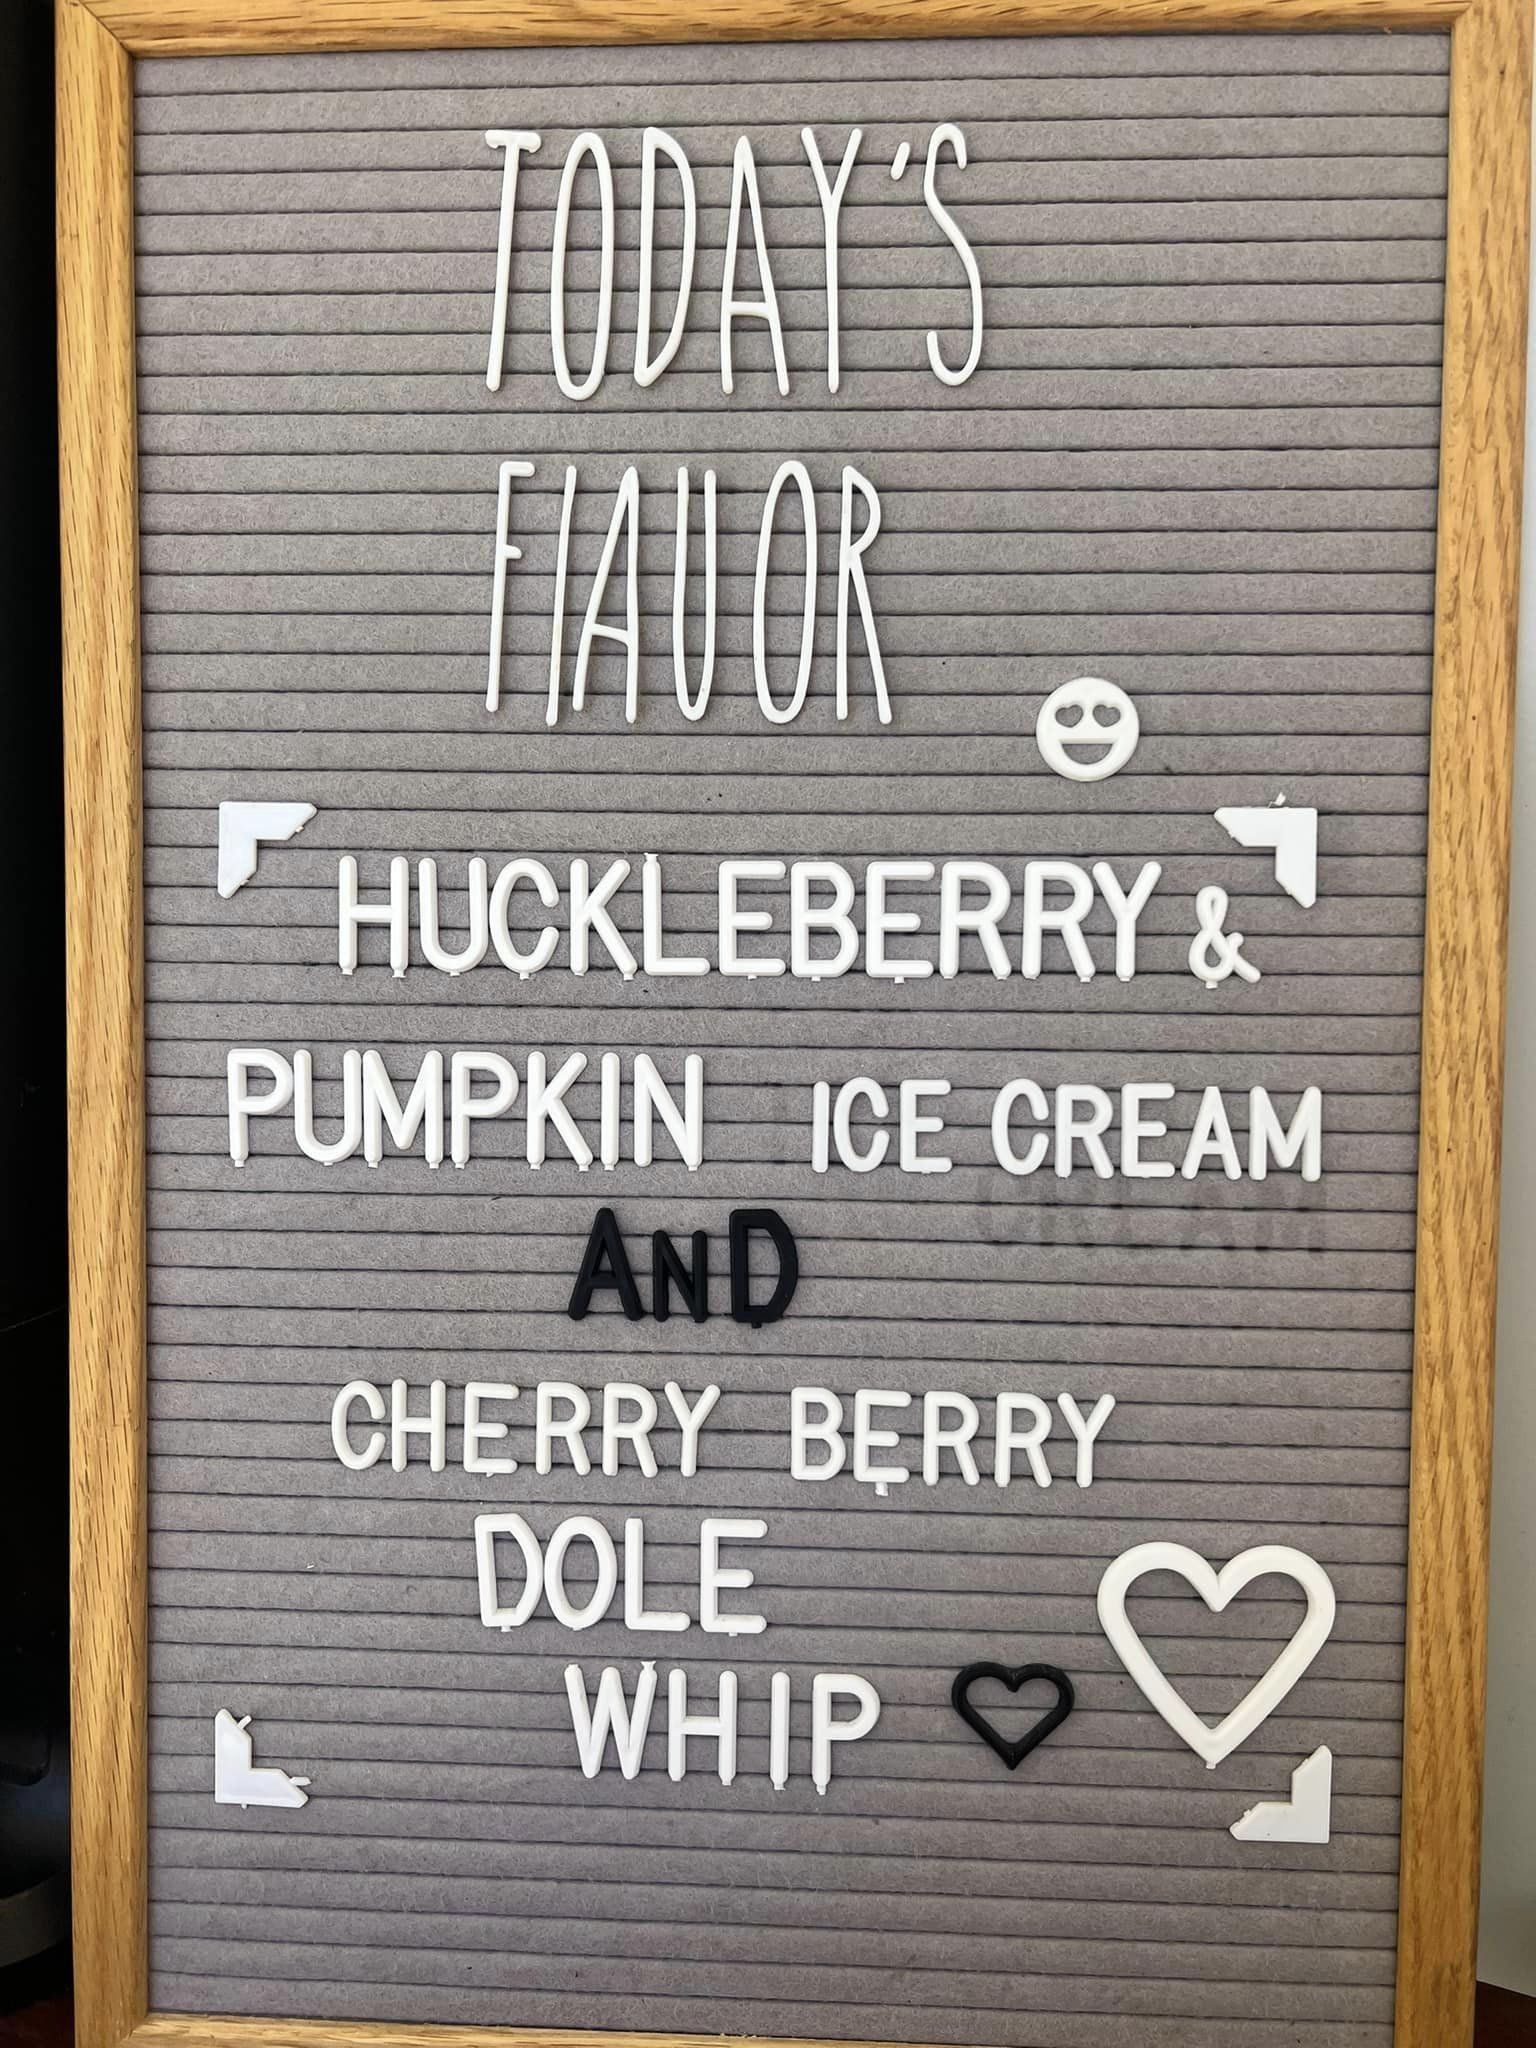 TODAY'S
FlAUOR
HUCKLEBERRY &
PUMPKIN ICE CREAM
AND
CHERRY BERRY
DOLE
WHIP